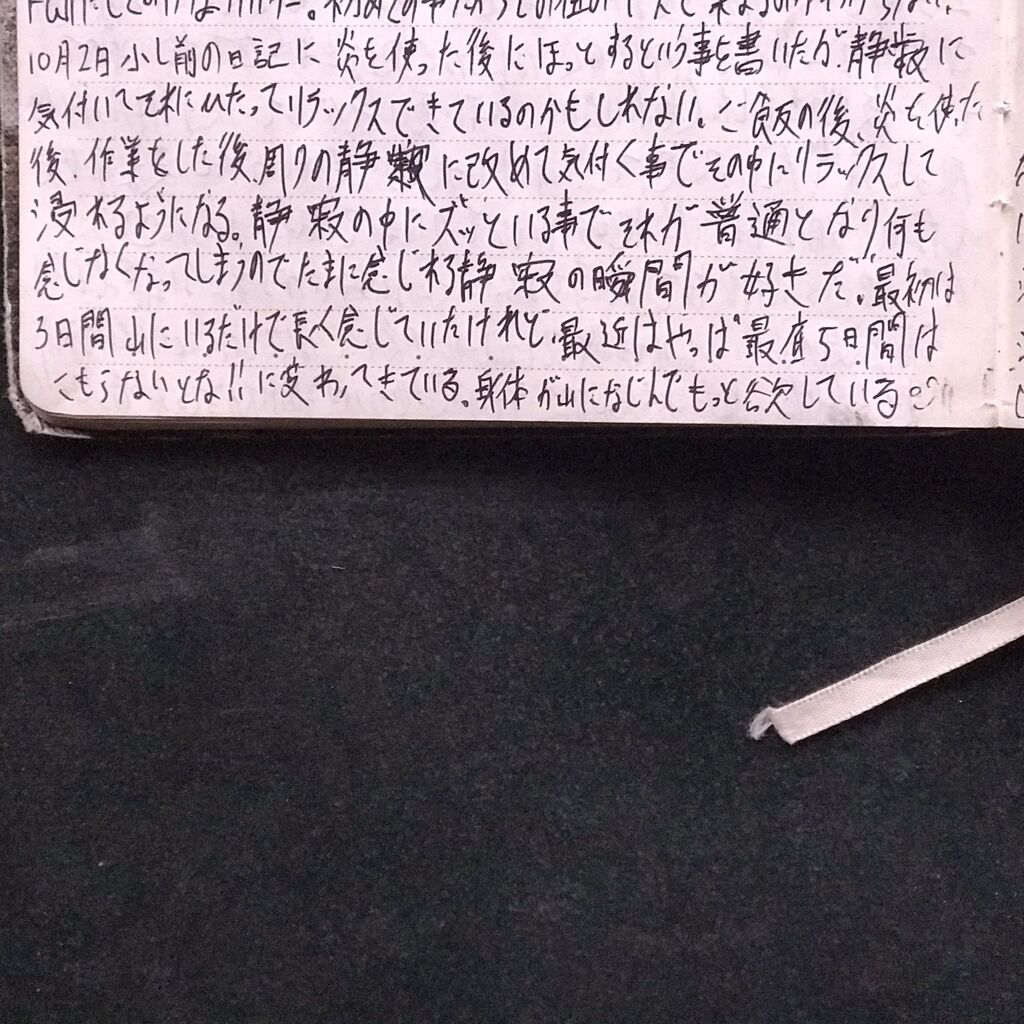 10月2日 少し前の日記に炎を使った後にほっとするという事を書いたが、静寂に
気付いてそれにひたっていリラックスできているのかもしれない。ご飯の後、炎を使った
後、作業をした後、周りの静寂に改めて気付く事でその中にリラックスして
浸れるようになる。静寂の中にズッといる事でそれが普通となり何も
感じなくなってしまうのでたまに感じれる静寂の瞬間が好きだ。最初は
3日間山にいるだけで長く感じていたけれど、最近はやっぱ最低5日間は
こもらないとな!!に変わってきている。身体が山になじんでもっと欲している